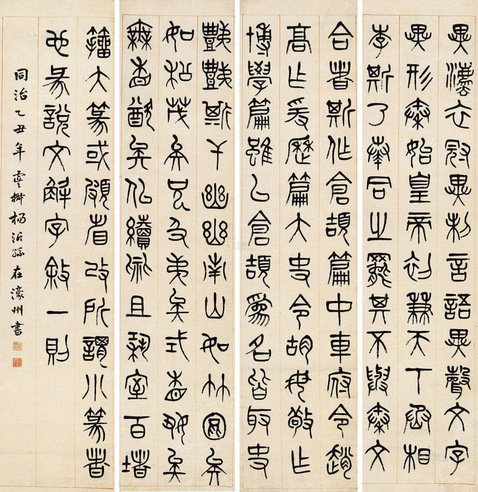 異灋衣冠異制言語異聲文字
異形秦始皇帝初兼天下丞相
李斯乃奏同之罷其不與秦文
合者斯作倉頡篇中車府令趙
高作爰歷篇大史令胡毋敬作
博學篇雖以倉頡為名皆取史
豑豑斯干幽幽南山如竹苞矣
如松茂矣兄及弟矣式相好矣
無相猷矣佀續妣且築室百堵
籀大篆或頗省改所謂小篆者
也說文解字敘一則
同治乙丑年楊沂孫在濠州書